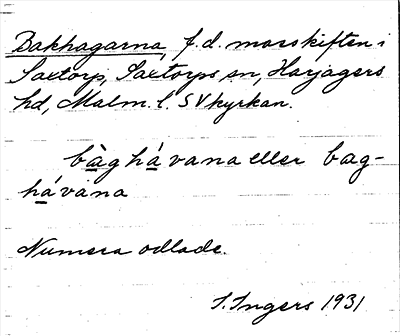 Bakhagarna, f.d. mosskiften i
Saxtorp, Saxtorps sn, Harjagers
hd, Malm. l. SV kyrkan.
bàghávana eller bag-
hávána
Numera odlade.
I. Ingers 1931